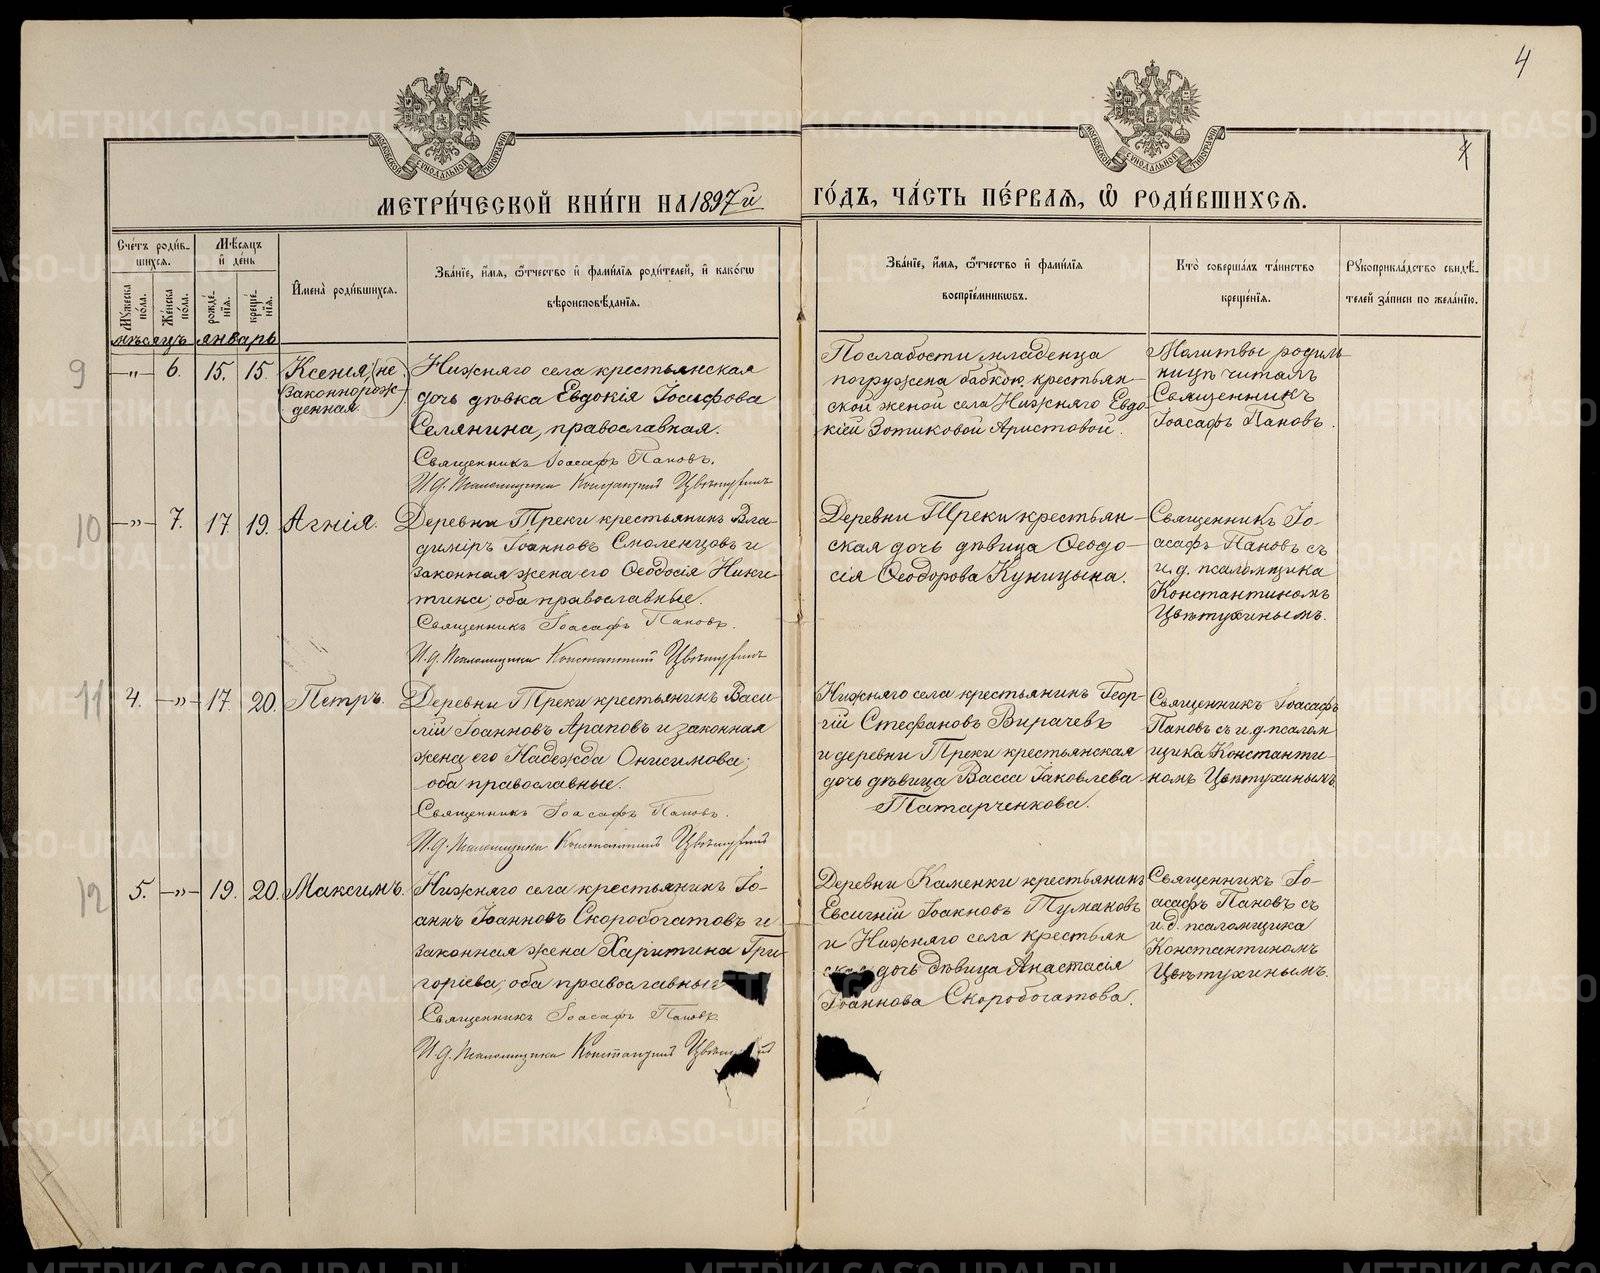 4
4
МЕТРИ́ЧЕСКОЙ КНИ́ГИ НА 1897 й ГО́ДЪ, ЧА́СТЬ ПЕ́РВАЯ, Ѡ҆ РОДИ́ВШИХСЯ.
Сче́тъ роди́в-
шихся.
Му́жеска по́ла.
Же́нска по́ла.
Мѣ́сяцъ
и҆ де́нь
рожде́нїя.
креще́нїя.
И҆мена̀ роди́вшихся.
Зва́нїе, и҆́мя, ѻ҆́тчество и҆ фами́лїя роди́телей, и҆ како́гѡ
вѣроисповѣ́данїя.
Зва́нїе, и҆́мя, ѻ҆́тчество и҆ фами́лїя
воспрїе́мниковъ.
Кто̀ соверша́лъ та́инство
креще́нїя.
Рꙋкоприкла́дство свидѣ́-
телей за́писи по жела́нїю.
мѣсяцъ январь
9
-„- 6. 15. 15.
Ксенія, (не
законнорож-
денная.)
Нижняго села крестьянская
дочь дѣвка Евдокія Іосифова
Селянина, православная.
Священникъ Іоасафъ Пановъ.
И.д. Псаломщика Константинъ Цвѣтухинъ
По слабости младенца
погружена бабкою, крестьян-
ской женой села Нижняго Евдо-
кіей Зотиковой Аристовой.
Молитвы родиль-
ницѣ читалъ
Священникъ
Іоасафъ Пановъ.
10
-„- 7. 17. 19.
Агнія.
Деревни Треки крестьянинъ Вла-
диміръ Іоанновъ Смоленцовъ и
законная жена его Ѳеодосія Ники-
тина; оба православные.
Священникъ Іоасафъ Пановъ.
И.д. Псаломщика Константинъ Цвѣтухинъ
Деревни Треки крестьян-
ская дочь дѣвица Ѳеодо-
сія Ѳеодорова Куницына.
Священникъ Іо-
асафъ Пановъ съ
и.д. псаломщика
Константиномъ
Цвѣтухинымъ.
11
4. -„- 17. 20.
Петръ.
Деревни Треки крестьянинъ Васи-
лій Іоанновъ Араповъ и законная
жена его Надежда Онисимова;
оба православные.
Священникъ Іоасафъ Пановъ.
И.д. Псаломщика Константинъ Цвѣтухинъ
Нижняго села крестьянинъ Геор-
гій Стефановъ Вирачевъ
и деревни Треки крестьянская
дочь дѣвица Васса Іаковлева
Татарченкова.
Священникъ Іоасафъ
Пановъ съ и.д. псалом-
щика Константи-
номъ Цвѣтухинымъ.
12
5. -„- 19. 20.
Максимъ.
Нижняго села крестьянинъ Іо-
аннъ Іоанновъ Скоробогатовъ и
законная жена Харитина Гри-
горіева; оба православные
Священникъ Іоасафъ Пановъ.
И.д. Псаломщика Константинъ
Деревни Каменки крестьянинъ
Евсигній Іоакновъ Тумаковъ
и Нижняго села крестьян
дочь дѣвица Анастасія
Іоаннова Скоробогатова.
Священникъ Іо-
асафъ Пановъ съ
и.д. псаломщика
Константиномъ
Цвѣтухинымъ.
METRIKI.GASO-URAL.RU